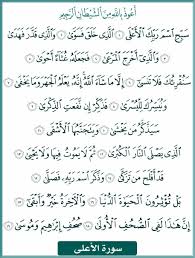 أَعُوذُ بِاللَّهِ مِنَ الشَّيْطَانِ الرَّجِيمِ
سَبِّحِ اسْمَ رَبِّكَ الْأَعْلَى ١ الَّذِي خَلَقَ فَسَوَّىٰ ٢ وَالَّذِي قَدَّرَ فَهَدَىٰ ٣
وَالَّذِي أَخْرَجَ الْمَرْعَىٰ ٤ فَجَعَلَهُ غُثَاءً أَحْوَىٰ ٥
سَنُقْرِئُكَ فَلَا تَنسَىٰ ٦ إِلَّا مَا شَاءَ اللَّهُ إِنَّهُ يَعْلَمُ الْجَهْرَ وَمَا يَخْفَىٰ ٧
وَنُيَسِّرُكَ لِلْيُسْرَىٰ ٨ فَذَكِّرْ إِن نَّفَعَتِ الذِّكْرَىٰ ٩
سَيَذَّكَّرُ مَن يَخْشَىٰ ١٠ وَيَتَجَنَّبُهَا الْأَشْقَى ١١
الَّذِي يَصْلَى النَّارَ الْكُبْرَىٰ ١٢ ثُمَّ لَا يَمُوتُ فِيهَا وَلَا يَحْيَىٰ ١٣
قَدْ أَفْلَحَ مَن تَزَكَّىٰ ١٤ وَذَكَرَ اسْمَ رَبِّهِ فَصَلَّىٰ ١٥
بَلْ تُؤْثِرُونَ الْحَيَاةَ الدُّنْيَا ١٦ وَالْآخِرَةُ خَيْرٌ وَأَبْقَىٰ ١٧
إِنَّ هَٰذَا لَفِي الصُّحُفِ الْأُولَىٰ ١٨ صُحُفِ إِبْرَاهِيمَ وَمُوسَىٰ ١٩
سورة الأعلى